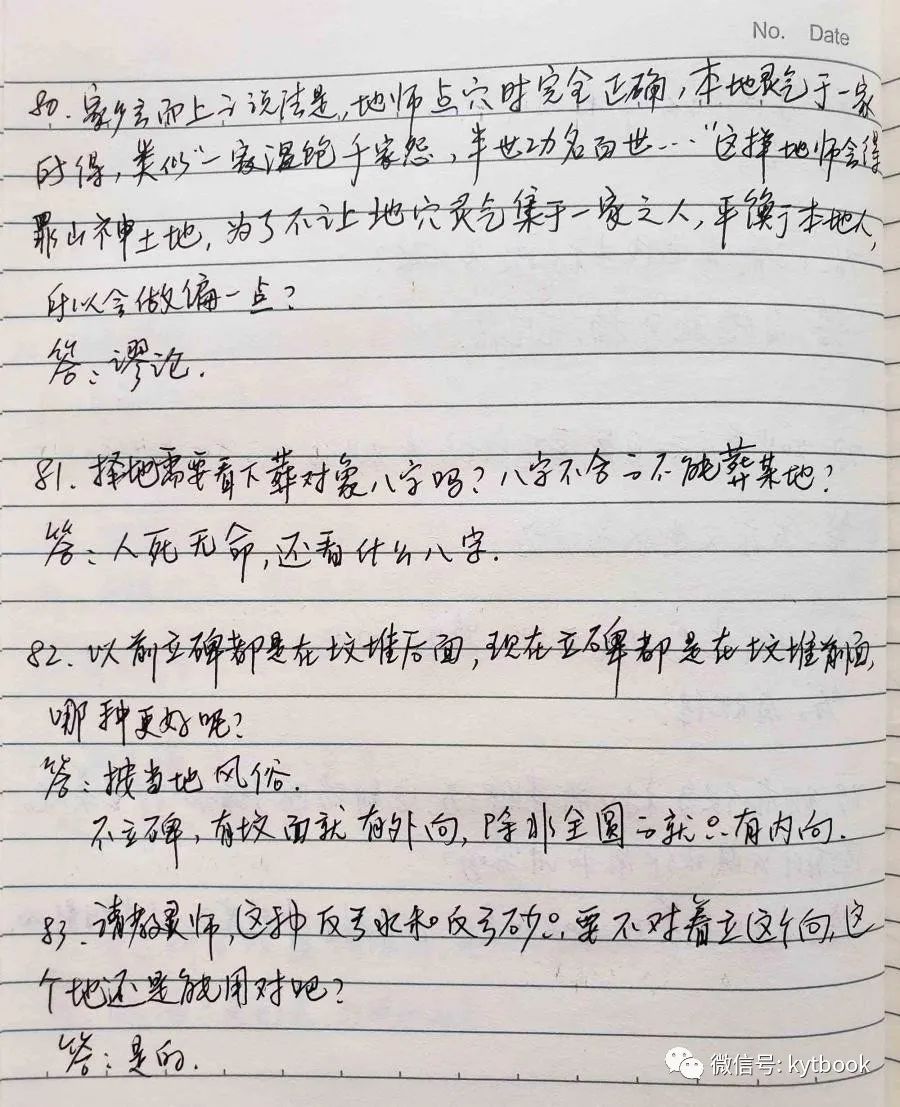 No. Date
80. 家乡言而上说法是,地师点穴时完全正确,本地灵气于一家
所得,类似“一家温饱千家怨,半世功名百世…”这样地师会得
罪山神土地,为了不让地穴灵气集于一家之人,平衡于本地人,
所以会做偏一点?
答:谬论.
81. 择地需要看下葬对象八字吗?八字不合不能葬某地?
答:人死无命,还看什么八字.
82. 以前立碑都是在坟堆后面,现在立碑都是在坟堆前面,
哪种更好呢?
答:按当地风俗.
不立碑,有坟面就有外向,除非全圆就只有内向.
83. 请教老师,这种反弓水和反弓砂只要不对着立这个向,这
个地还是能用对吧?
答:是的.
微信号: kytbook